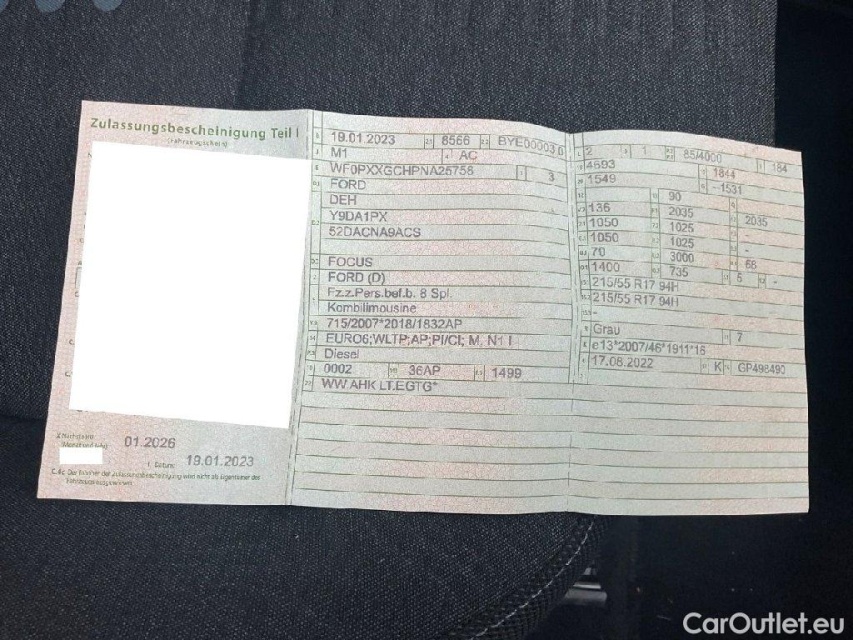 Zulassungsbescheinigung Teil I
(Fahrzeugschein)
01.2026
I Datum: 19.01.2023
19.01.2023 8566 BYE00003 0
M1 AC
WF0PXXGCHPNA25758 3
FORD
DEH
Y9DA1PX
52DACNA9ACS
FOCUS
FORD (D)
Fz.z.Pers.bef.b. 8 Spl.
Kombilimousine
715/2007*2018/1832AP
EURO6;WLTP;AP;PI/CI; M, N1 I
Diesel
0002 36AP 1499
WW.AHK LT.EGTG*
2 1 85/4000 184
4693 1844
1549 -1531
90
136 2035 2035
1050 1025
1050 1025 -
70 3000 66
1400 735 5 -
215/55 R17 94H
215/55 R17 94H
-
Grau 7
e13*2007/46*1911*16
17.08.2022 K GP498490
CarOutlet.eu